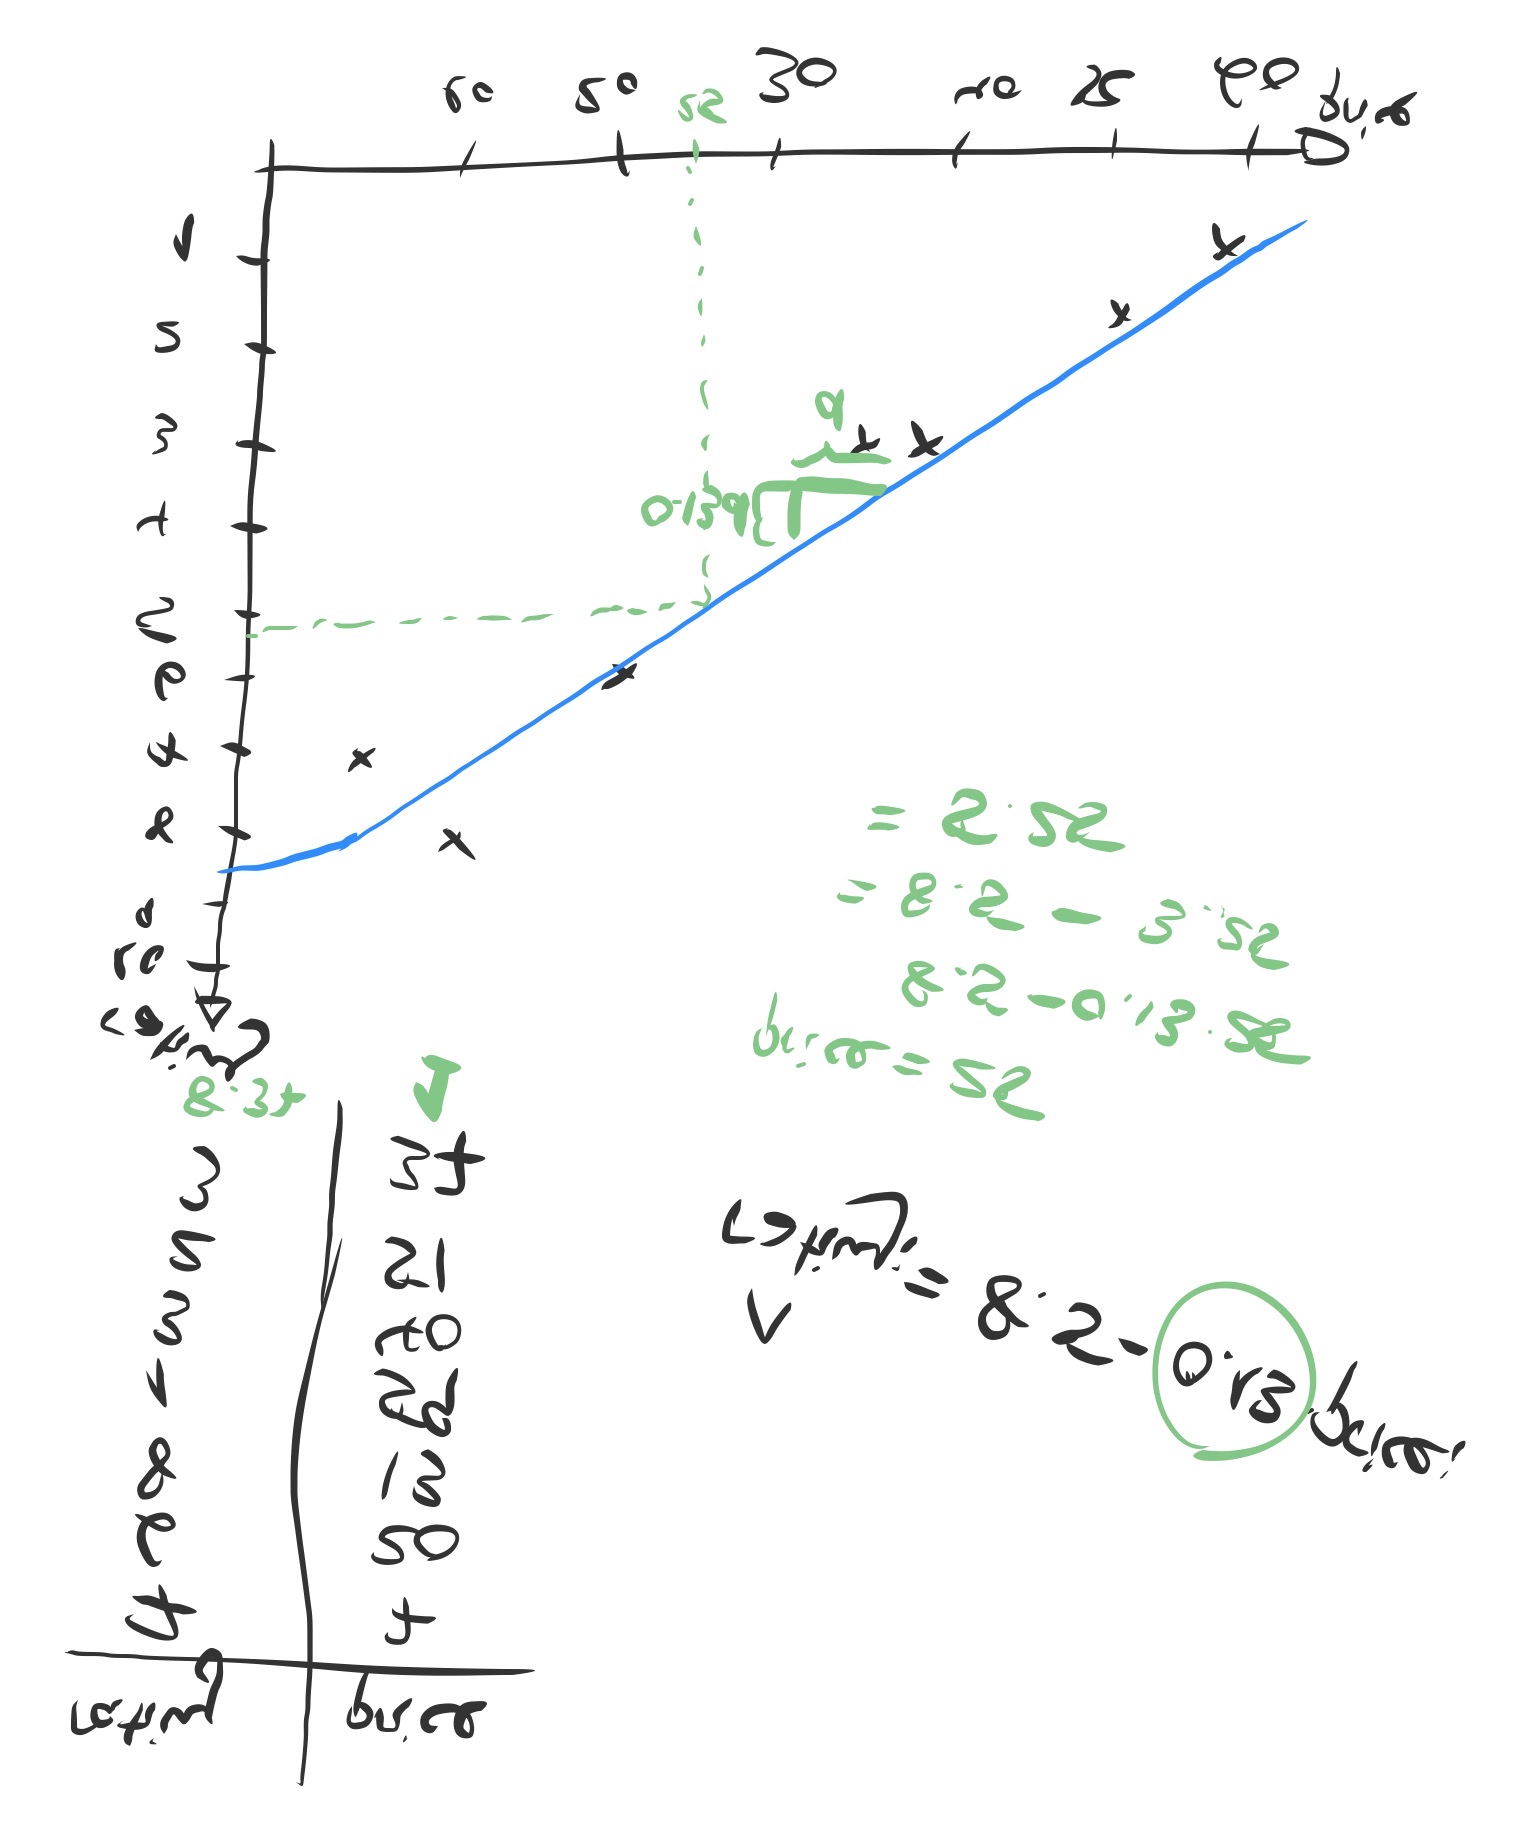 rating price
7 7
6 20
8 13
1 59
3 40
2 51
3 37
8.37 1
^
ratingᵢ = 8.5 - 0.13 priceᵢ
price = 25
8.5 - 0.13 · 25
= 8.5 - 3.25
= 5.25
rating
10
9
8
7
6
5
4
3
2
1
0.13d
d
10 20 25 30 40 50 60
price